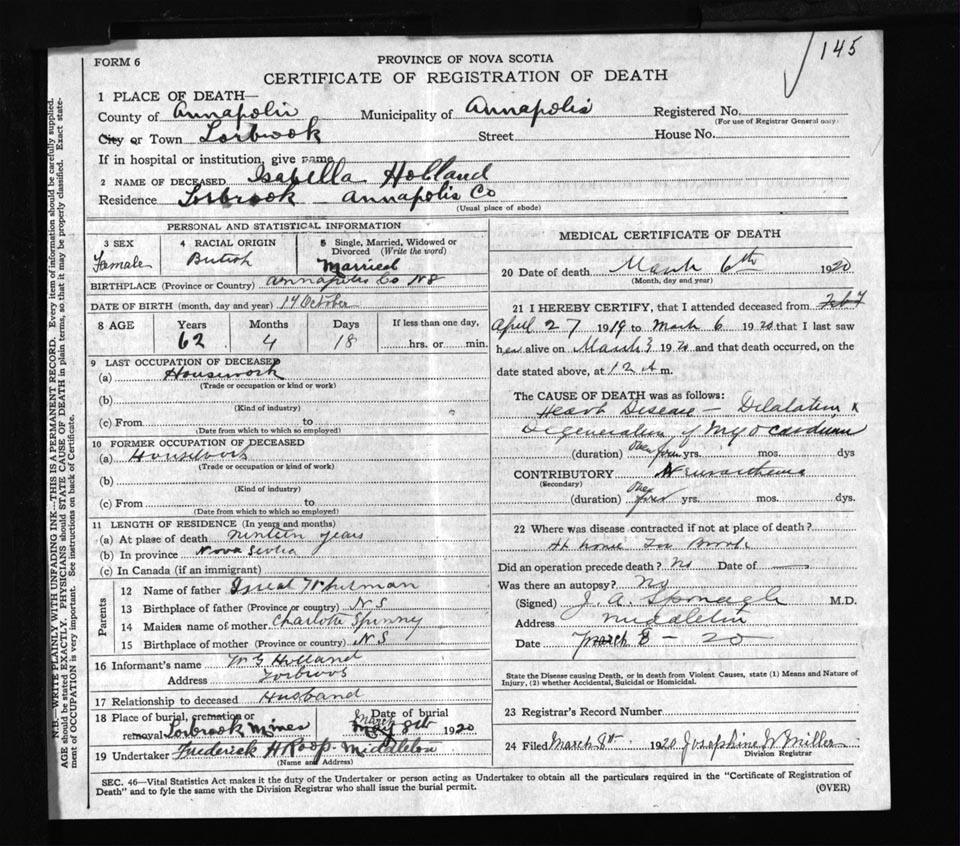 145
FORM 6
PROVINCE OF NOVA SCOTIA
CERTIFICATE OF REGISTRATION OF DEATH
N.B.—WRITE PLAINLY WITH UNFADING INK—THIS IS A PERMANENT RECORD. Every item of information should be carefully supplied.
AGE should be stated EXACTLY. PHYSICIANS should STATE CAUSE OF DEATH in plain terms, so that it may be properly classified. Exact state-
ment of OCCUPATION is very important. See instructions on back of Certificate.
1 PLACE OF DEATH—
County of Annapolis Municipality of Annapolis Registered No.
(For use of Registrar General only)
City or Town Torbrook Street House No.
If in hospital or institution, give name
2 NAME OF DECEASED Isabella Holland
Residence Torbrook - Annapolis Co
(Usual place of abode)
PERSONAL AND STATISTICAL INFORMATION
3 SEX 4 RACIAL ORIGIN 5 Single, Married, Widowed or
Divorced (Write the word)
Female British Married
BIRTHPLACE (Province or Country) Annapolis Co NS
DATE OF BIRTH (month, day and year) 17 October
8 AGE Years Months Days If less than one day,
62 4 18 hrs. or min.
9 LAST OCCUPATION OF DECEASED
(a) Housework
(Trade or occupation or kind or work)
(b)
(Kind of industry)
(c) From to
(Date from which to which so employed)
10 FORMER OCCUPATION OF DECEASED
(a) Housework
(Trade or occupation or kind of work)
(b)
(Kind of industry)
(c) From to
(Date from which to which so employed)
11 LENGTH OF RESIDENCE (In years and months)
(a) At place of death nineteen years
(b) In province Nova Scotia
(c) In Canada (if an immigrant)
Parents
12 Name of father Isreal Whitman
13 Birthplace of father (Province or country) N S
14 Maiden name of mother Charlotte Spinny
15 Birthplace of mother (Province or country) N S
16 Informant's name Holland
Address Torbrook
17 Relationship to deceased Husband
18 Place of burial, cremation or removal Torbrook Mines
Date of burial March 8th 1920
19 Undertaker Frederick H Roop - Middleton
(Name and Address)
MEDICAL CERTIFICATE OF DEATH
20 Date of death March 6th 1920
(Month, day and year)
21 I HEREBY CERTIFY, that I attended deceased from
April 27 1919 to March 6 1920 that I last saw
her alive on March 3 1920 and that death occurred, on the
date stated above, at 12 A m.
The CAUSE OF DEATH was as follows:
Heart Disease — Dilatation &
Degeneration of Myocardium
(duration) yrs. mos. dys
CONTRIBUTORY Neurasthenia
(Secondary)
(duration) yrs. mos. dys.
22 Where was disease contracted if not at place of death?
At home Torbrook
Did an operation precede death? No Date of —
Was there an autopsy? No
(Signed) J. A. Sponagle M.D.
Address Middleton
Date March 8 - 20
State the Disease causing Death, or in death from Violent Causes, state (1) Means and Nature of
Injury, (2) whether Accidental, Suicidal or Homicidal.
23 Registrar's Record Number
24 Filed March 8th 1920 Josephine W Miller
Division Registrar
SEC. 46—Vital Statistics Act makes it the duty of the Undertaker or person acting as Undertaker to obtain all the particulars required in the "Certificate of Registration of
Death" and to fyle the same with the Division Registrar who shall issue the burial permit.
(OVER)